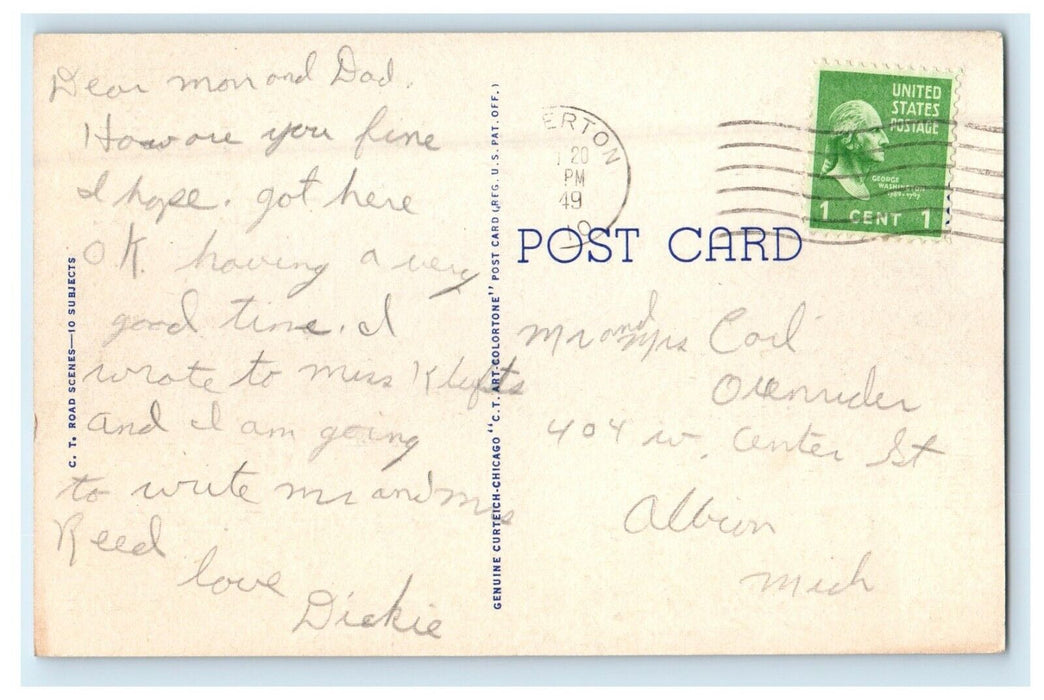 Dear mom and Dad.
How are you fine
I hope. got here
O.K. having a very
good time. I
wrote to miss
and I am going
to write mr and mrs
Reed
love
Dickie
C. T. ROAD SCENES—10 SUBJECTS
GENUINE CURTEICH-CHICAGO "C.T. ART-COLORTONE" POST CARD (REG. U.S. PAT. OFF.)
ERTON
20
PM
49
UNITED
STATES
POSTAGE
GEORGE
WASHINGTON
1789-1797
1 CENT 1
POST CARD
Mr and Mrs Carl
404 w. Center St
Albion
Mich